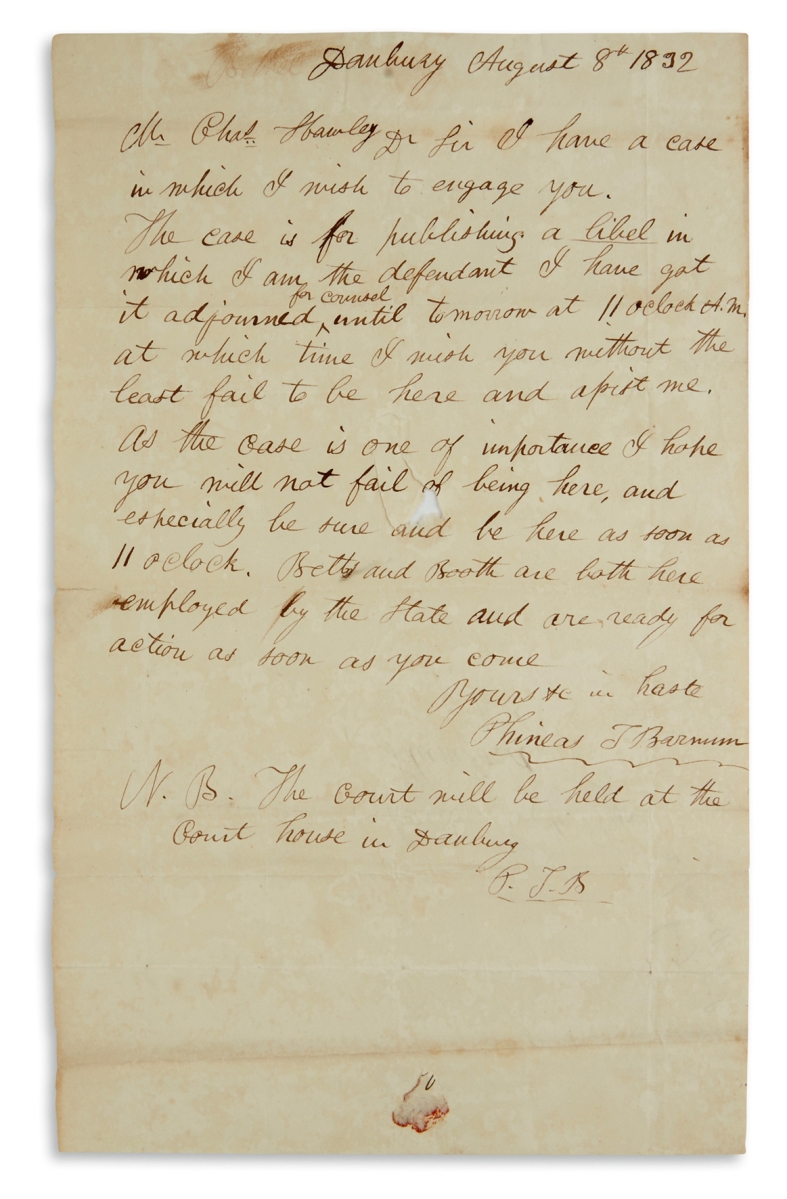 Danbury August 8th 1832
Mr Chas. Hawley Dr Sir I have a case
in which I wish to engage you.
The case is for publishing a libel in
which I am the defendant I have got
for counsel
it adjourned ^ until tomorrow at 11 oclock A.M.
at which time I wish you without the
least fail to be here and assist me.
As the case is one of importance I hope
you will not fail of being here, and
especially be sure and be here as soon as
11 oclock. Betts and Booth are both here
employed by the State and are ready for
action as soon as you come
Yours &c in haste
Phineas T Barnum
N. B. The Court will be held at the
Court house in Danbury
P. T. B